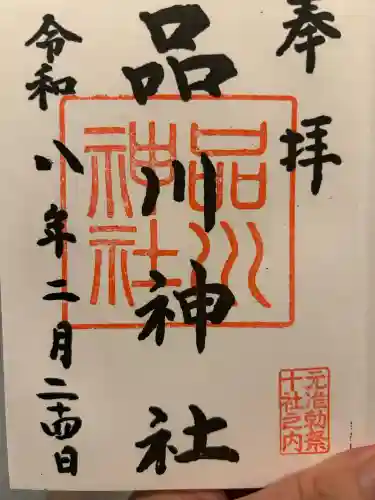 奉拝
品川神社
品川神社
元准勅祭
十社之内
令和八年二月二十四日